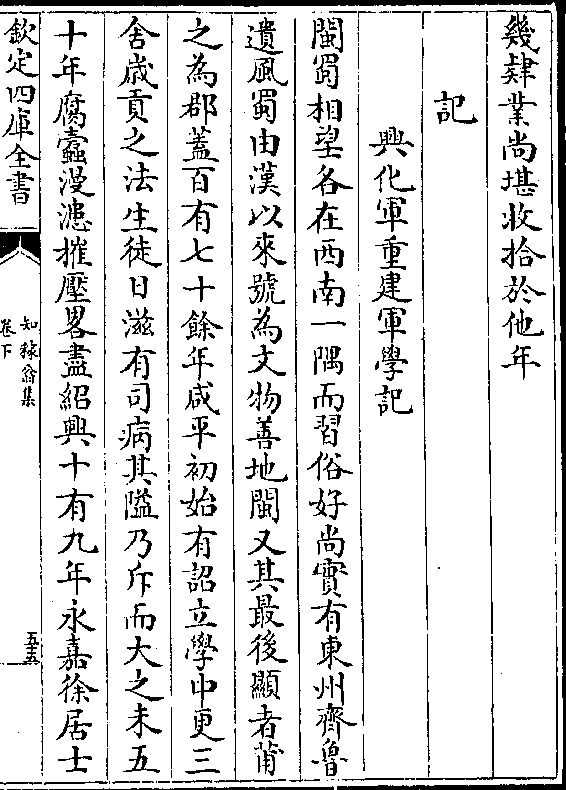 幾肄業尚堪收拾於他年
記
興化軍重建軍學記
閩蜀相望各在西南一隅而習俗好尚實有東州齊魯
遺風蜀由漢以來號為文物善地閩又其最後顯者莆
之為郡蓋百有七十餘年咸平初始有詔立學中更三
舍歲貢之法生徒日滋有司病其隘乃斥而大之未五
十年腐蠧漫漶摧壓畧盡紹興十有九年永嘉徐居士
欽定四庫全書
知稼翁集
卷下
五五